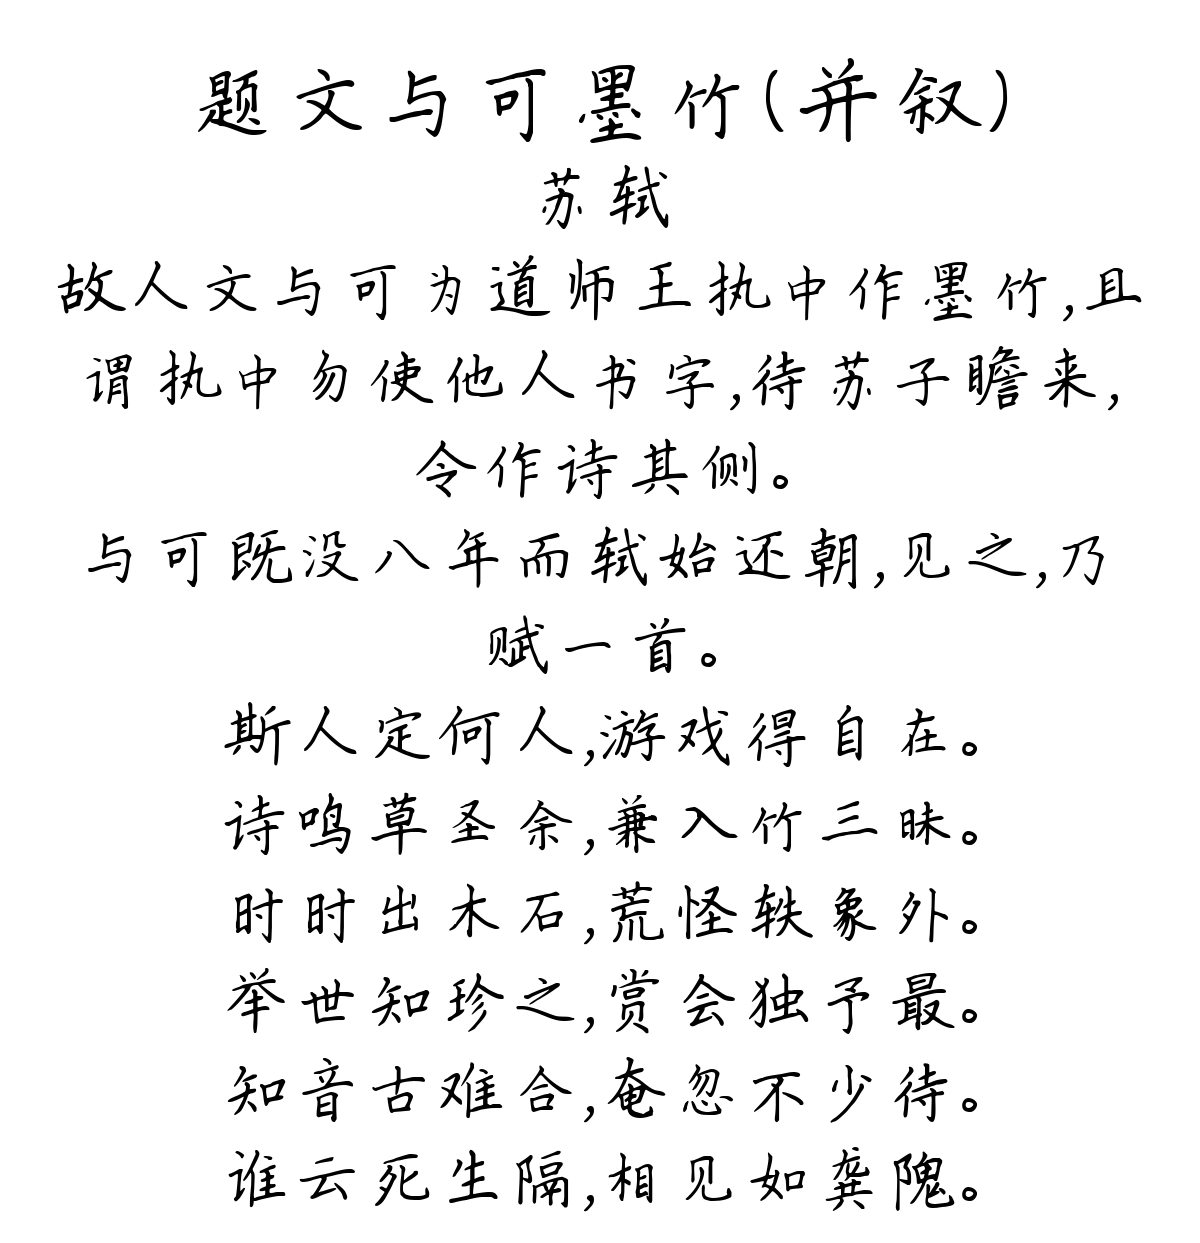 题文与可墨竹(并叙)
苏轼
故人文与可为道师王执中作墨竹,且
谓执中勿使他人书字,待苏子瞻来,
令作诗其侧。
与可既没八年而轼始还朝,见之,乃
赋一首。
斯人定何人,游戏得自在。
诗鸣草圣余,兼入竹三昧。
时时出木石,荒怪轶象外。
举世知珍之,赏会独予最。
知音古难合,奄忽不少待。
谁云死生隔,相见如龚隗。